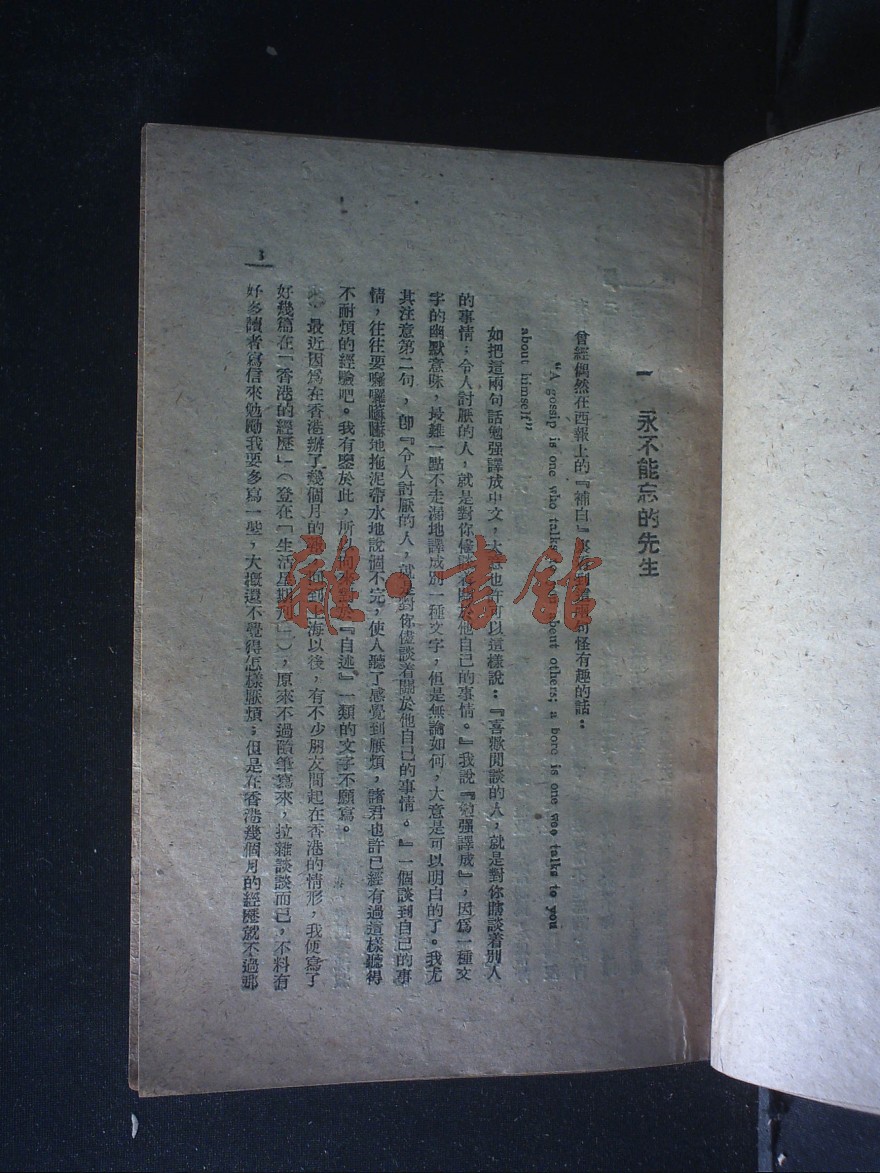 一 永不能忘的先生
曾經偶然在西報上的『補白』到句怪有趣的話：
"A gossip is one who talks to you about others; a bore is one woo talks to you
about himself"
如把這兩句話勉强譯成中文，大意也許可以這樣說：『喜歡閒談的人，就是對你瞎談着別人
的事情；令人討厭的人，就是對你儘談着關於他自己的事情。』我說『勉强譯成』，因爲一種文
字的幽默意味，最難一點不走漏地譯成別一種文字，但是無論如何，大意是可以明白的了。我尤
其注意第二句，卽『令人討厭的人，就是對你儘談着關於他自己的事情。』一個談到自己的事
情，往往要囉囉嚇嚇地拖泥帶水地說個不完，使人聽了感覺到厭煩，諸君也許已經有過這樣聽得
不耐煩的經驗吧。我有鑒於此，所『自述』一類的文字不願寫。
最近因爲在香港辦了幾個月的到上海以後，有不少朋友問起在香港的情形，我便寫了
好幾篇在「香港的經歷」（登在「生活星期刊」），原來不過隨筆寫來，拉雜談談而已，不料有
好多讀者寫信來勉勵我要多寫一些，大概還不覺得怎樣厭煩；但是在香港幾個月的經歷就不過那
3
雜·書館